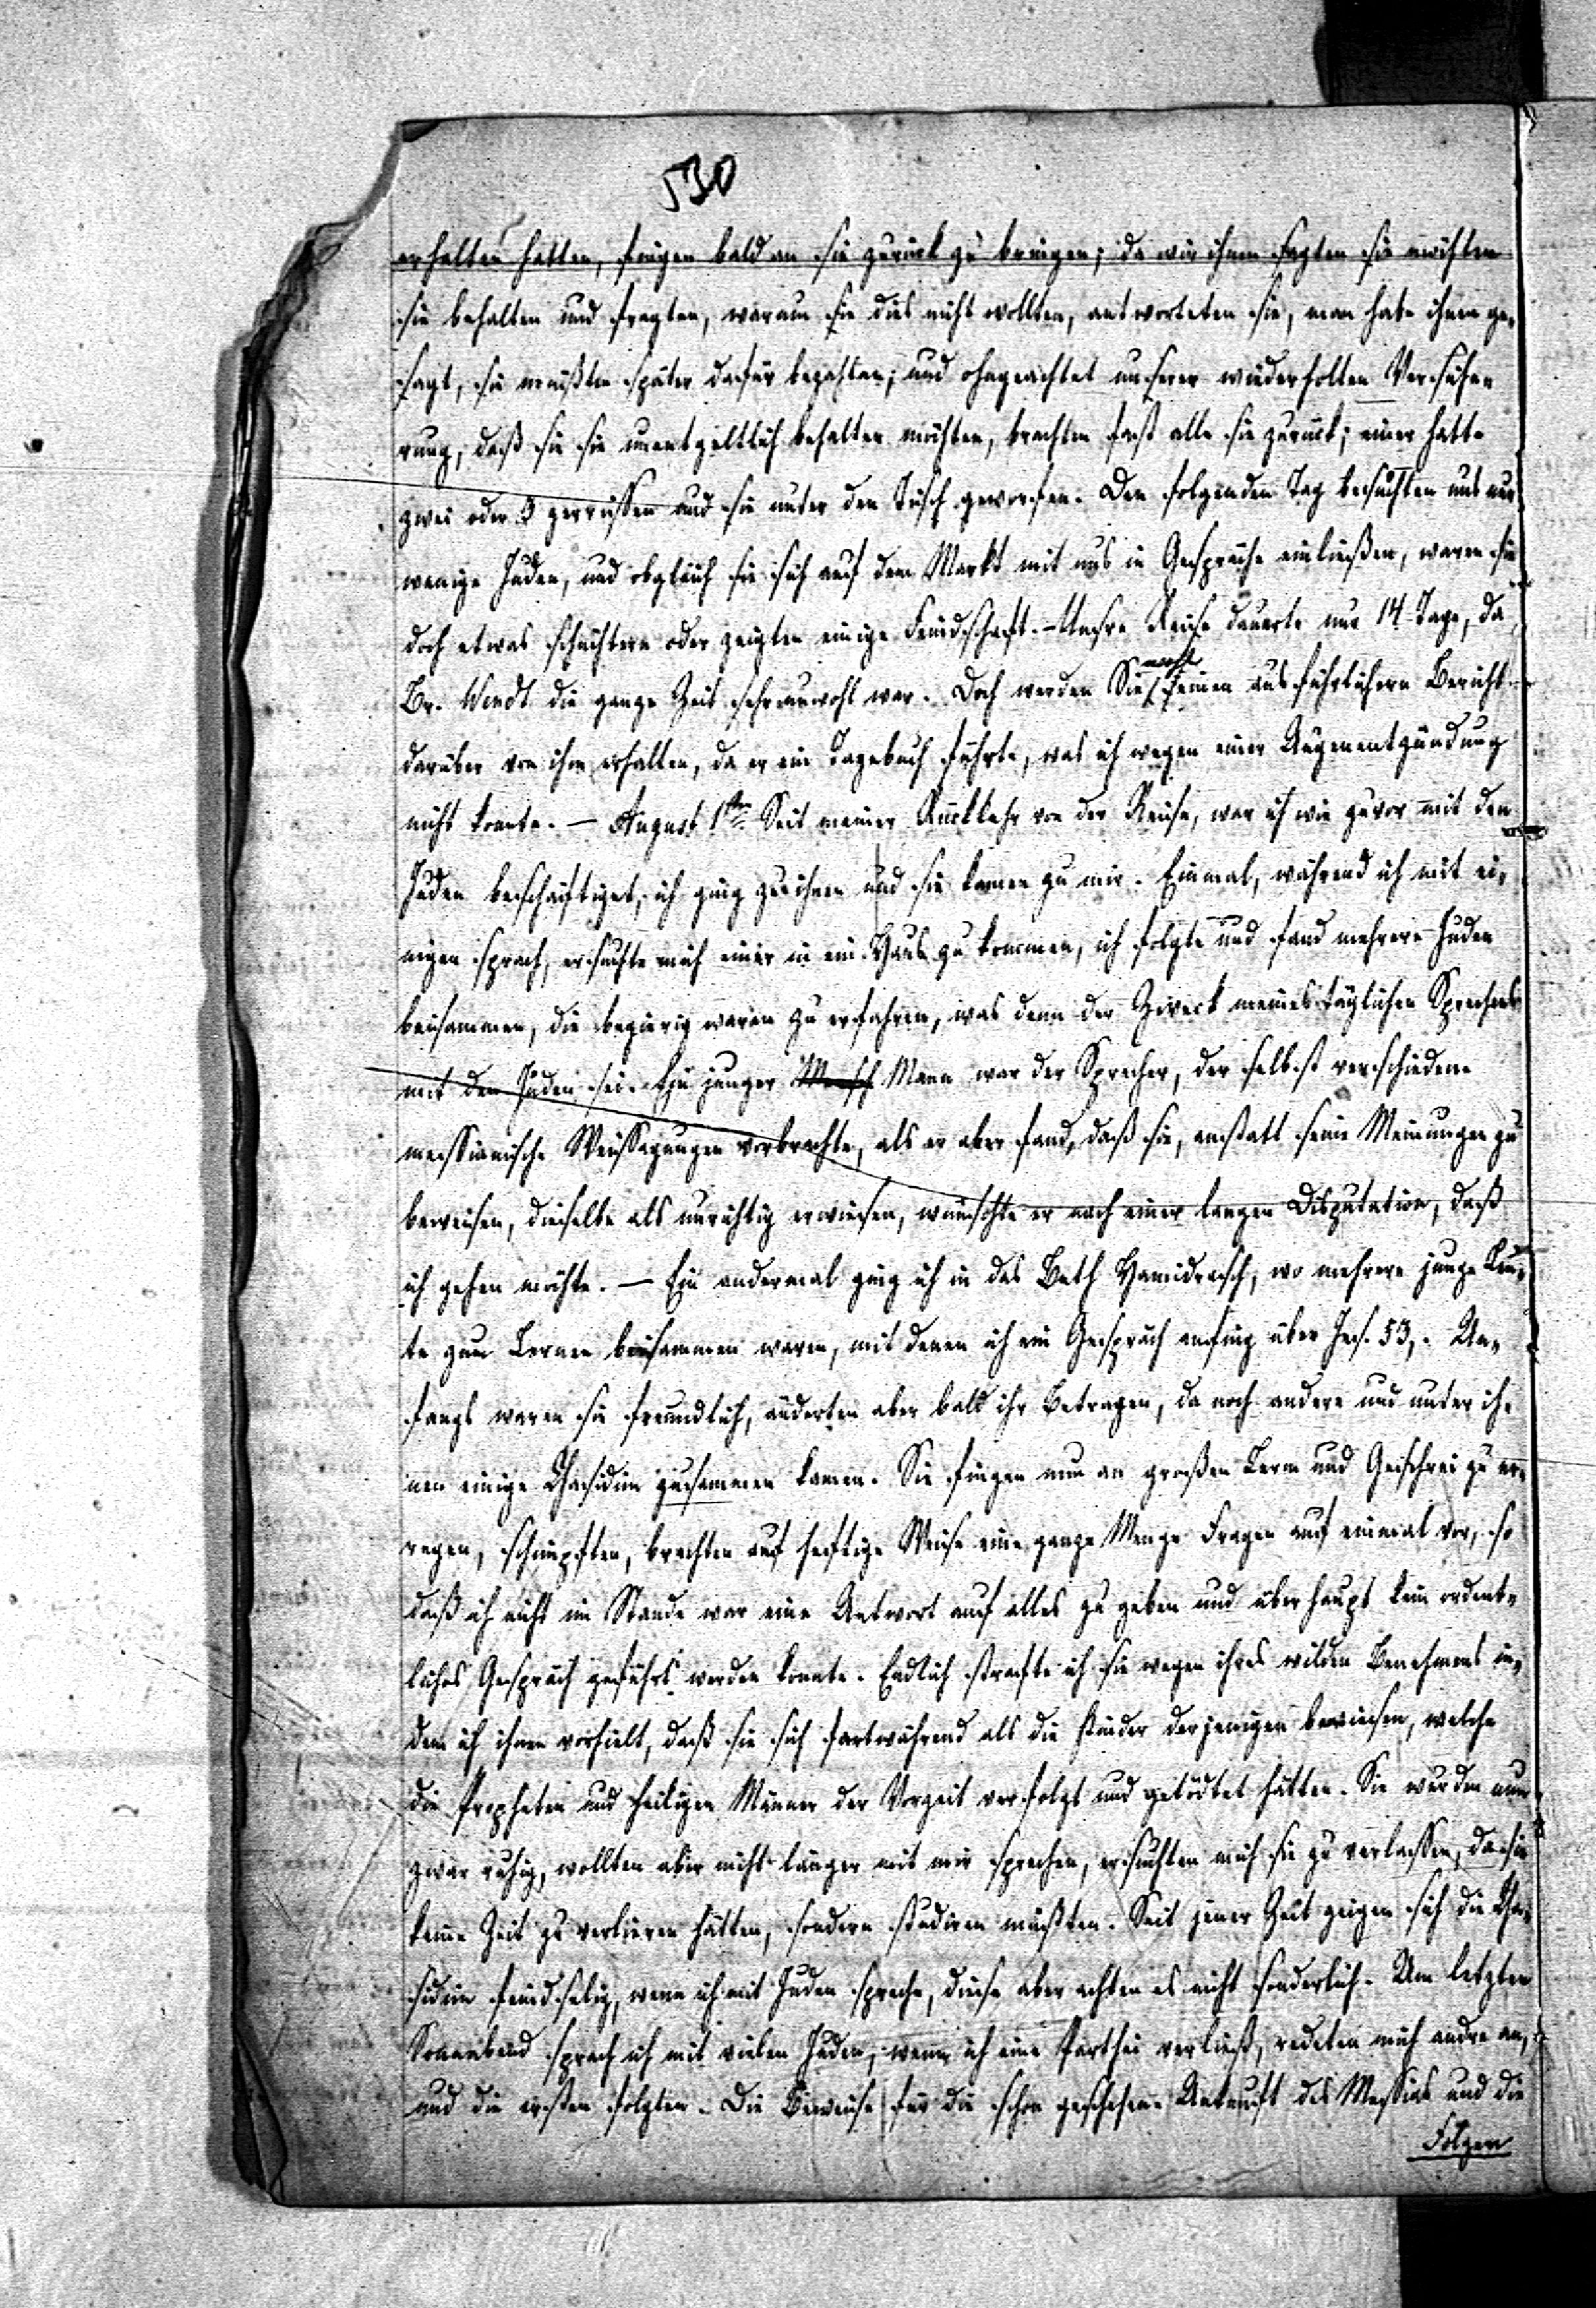 530
erhalten hatten, fingen bald an sie zurück zu bringen; da wir ihnen sagten sie möchten
sie behalten und fragten, warum sie dies nicht wollten, antworteten sie, man habe ihnen ge-
sagt, sie müßten später dafür bezahlen; und ohngeachtet unserer wiederholten Versiche-
rung, daß sie sie unentgeltlich behalten möchten, brachten fast alle sie zurück; einer hatte
zwei oder 3 zerrissen und sie unter den Tisch geworfen. Den folgenden Tag besuchten uns nur
wenige Juden, und obgleich sie sich auf dem Markt mit uns in Gespräche einließen, waren sie
doch etwas schüchtern oder zeigten einige Feindschaft. – Unsre Reise dauerte nur 14 Tage, da
Br. Wendt die ganze Zeit sehr unwohl war. Doch werden Sie wohl einen ausführlichern Bericht
darüber von ihm erhalten, da er ein Tagebuch führte, was ich wegen einer Augenentzündung
nicht konnte. – August 1sten Seit meiner Rückkehr von der Reise, war ich wie zuvor mit den
Juden beschäftiget, ich ging zu ihnen und sie kamen zu mir. Einmal, während ich mit ei-
nigen sprach, ersuchte mich einer in ein Haus zu kommen, ich folgte und fand mehrere Juden
beisammen, die begierig waren zu erfahren, was denn der Zweck meines täglichen Sprechens
mit den Juden sei. Ein junger Mensch Mann war der Sprecher, der selbst verschiedene
messianische Weissagungen vorbrachte, als er aber fand, daß sie, anstatt seine Meinungen zu
beweisen, dieselbe als unrichtig erwiesen, wünschte er nach einer langen Disputation, daß
ich gehen möchte. – Ein andermal ging ich in das Beth Hamidrasch, wo mehrere junge Leu-
te zum Lernen beisammen waren, mit denen ich ein Gespräch anfing über Jes. 53,. An-
fangs waren sie freundlich, änderten aber bald ihr Betragen, da noch andere und unter ih-
nen einige Chasidim zusammen kamen. Sie fingen nun an großen Lerm und Geschrei zu er-
regen, schimpften, brachten auf heftige Weise eine ganze Menge Fragen auf einmal vor, so
daß ich nicht im Stande war eine Antwort auf alles zu geben und überhaupt kein ordent-
liches Gespräch geführt werden konnte. Endlich strafte ich sie wegen ihres wilden Benehmens in-
dem ich ihnen vorhielt, daß sie sich fortwährend als die Kinder derjenigen bewiesen, welche
die Propheten und heiligen Männer der Vorzeit verfolgt und getödtet hätten. Sie wurden nun
zwar ruhig, wollten aber nicht länger mit mir sprechen, ersuchten mich sie zu verlassen, da sie
keine Zeit zu verlieren hätten, sondern studiren müßten. Seit jener Zeit zeigen sich die Cha-
sidim feindselig, wenn ich mit Juden spreche, diese aber achten es nicht sonderlich. Am letzten
Sonnabend sprach ich mit vielen Juden, wenn ich eine Parthei verließ, redeten mich andre an,
und die ersten folgten. Die Beweise für die schon geschehene Ankunft des Messias und die
Folgen